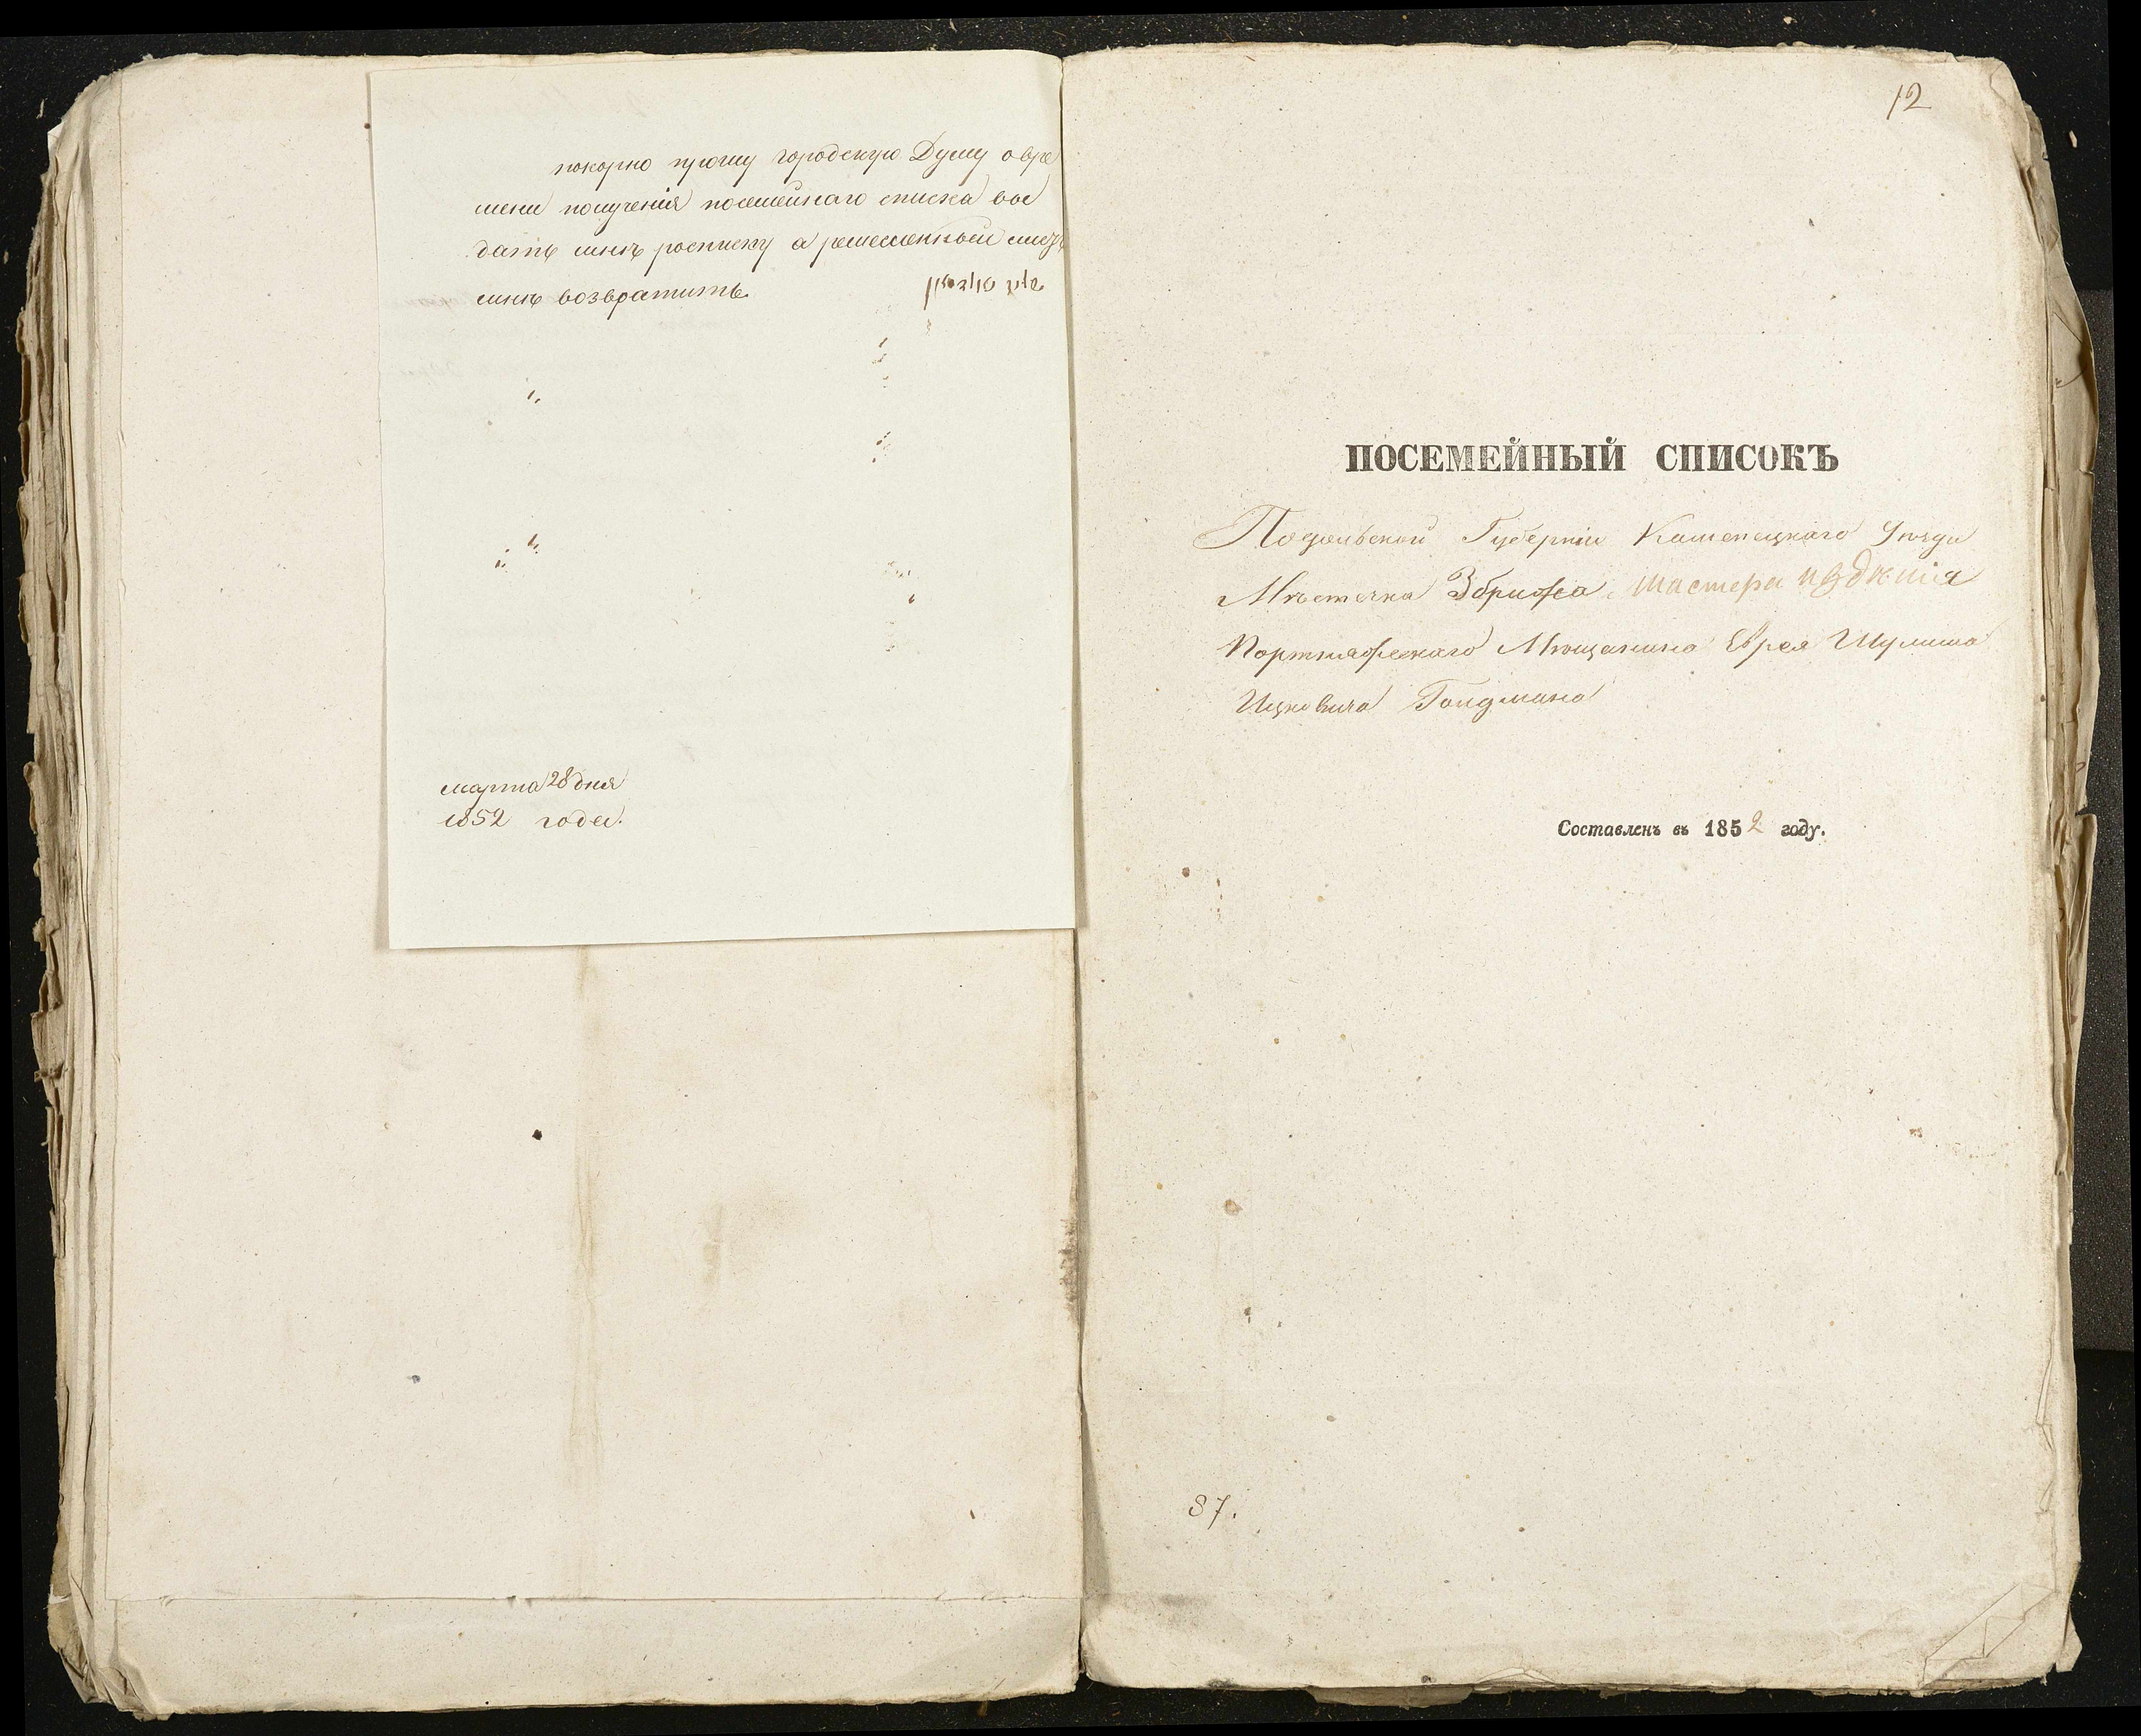 покорно прошу городскую Думу о вре
мени получения посемейнаго списка вы
дать мнѣ росписку а ремесленный
мнѣ возвратить.
марта 28 дня
1852 года.
12
ПОСЕМЕЙНЫЙ СПИСОКЪ
Подольской Губерніи Каменецкаго Уѣзда
Мѣстечка Збрижа Мастера
Портняжескаго Мѣщанина Еврея Шулима
Ицковича Голдмана
Составленъ въ 1852 году.
87.